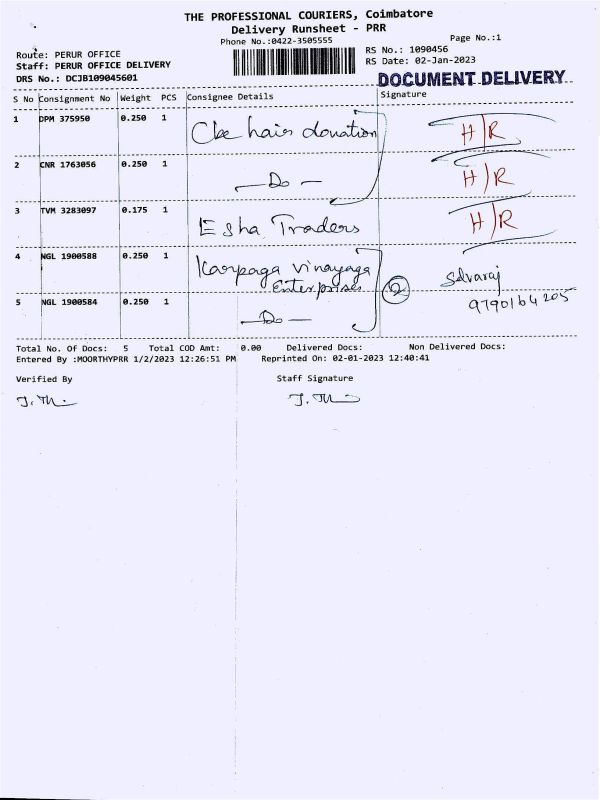 THE PROFESSIONAL COURIERS, Coimbatore
Delivery Runsheet - PRR
Phone No.:0422-3505555
Page No.:1
Route: PERUR OFFICE
RS No.: 1090456
Staff: PERUR OFFICE DELIVERY
RS Date: 02-Jan-2023
DRS No.: DCJB109045601
DOCUMENT DELIVERY
S No Consignment No Weight PCS Consignee Details Signature
1 DPM 375950 0.250 1 Cbe hair donation H/R
2 CNR 1763056 0.250 1 — Do — H/R
3 TVM 3283097 0.175 1 Esha Traders H/R
4 NGL 1900588 0.250 1 Karpaga Vinayaga Enterprises Selvaraj
2
9790164205
5 NGL 1900584 0.250 1 — Do —
Total No. Of Docs: 5 Total COD Amt: 0.00 Delivered Docs: Non Delivered Docs:
Entered By :MOORTHYPRR 1/2/2023 12:26:51 PM Reprinted On: 02-01-2023 12:40:41
Verified By Staff Signature